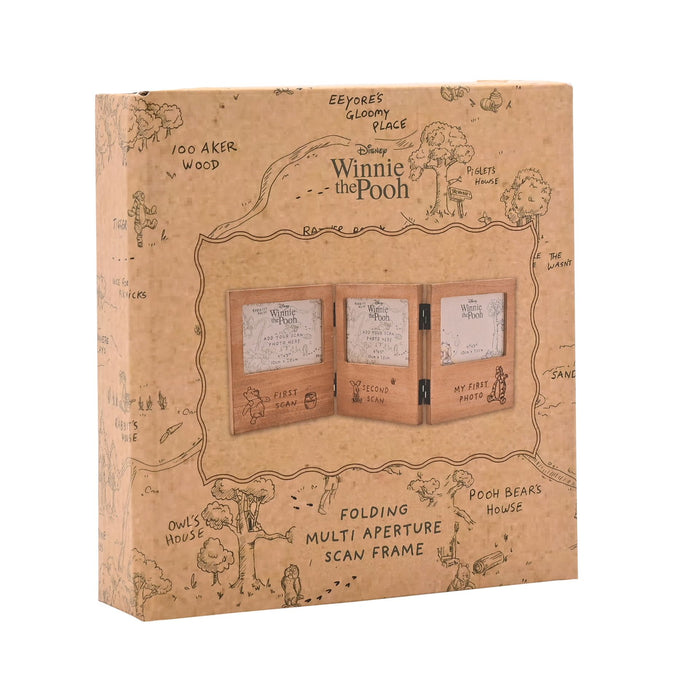 EEYORE'S
GLOOMY
PLACE
100 AKER
WOOD
Disney
Winnie
the Pooh
PIGLETS
HOWSE
THE WASNT
SAND
Disney
Winnie
the Pooh
ADD YOUR SCAN
PHOTO HERE
FIRST
SCAN
Disney
Winnie
the Pooh
ADD YOUR SCAN
PHOTO HERE
SECOND
SCAN
Disney
Winnie
the Pooh
MY FIRST
PHOTO
RABBIT'S
HOUSE
OWL'S
HOUSE
POOH BEAR'S
HOWSE
FOLDING
MULTI APERTURE
SCAN FRAME